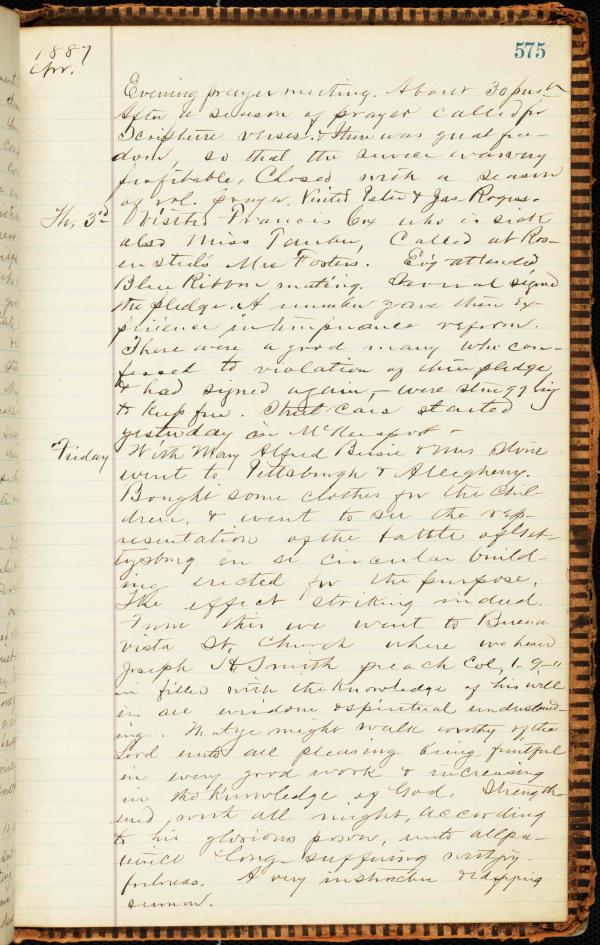 1887
Apr.
575
Evening prayer meeting. About 30 pres-
After a season of prayer called for
Scripture verses & there was great free-
dom, so that the service was very
profitable, Closed with a season
of vol. prayer. Visited Peter & Jas. Rogers.
Th, 3rd Visited Francis Cox who is sick
also Miss , Called at Ros-
ensteels Mrs Fosters. Ev'g attended
Blue Ribbon meeting. Several signed
the pledge. A number gave their ex-
perience in temperance reform.
There were a good many who con-
fessed to violation of their pledge,
& had signed again, – were struggling
to keep free. Street Cars started
yesterday in McKeesport –
Friday With Mary Alfred Bessie & Mrs Stone
went to Pittsburgh & Allegheny.
Bought some clothes for the chil-
dren, & went to see the rep-
resentation of the battle of Get-
tysburg in a circular build-
ing erected for the purpose.
The effect striking indeed.
From this we went to Buena
vista St, Church where we heard
Joseph H Smith preach Col, 1-9-11
filled with the knowledge of his will
in all wisdom & spiritual understand-
ing. That ye might walk worthy of the
Lord unto all pleasing being fruitful
in every good work & increasing
in the knowledge of God, Strength-
ened with all might, according
to his glorious power, unto all pa-
tience & long suffering with joy-
fulness. A very instructive & edifying
sermon.